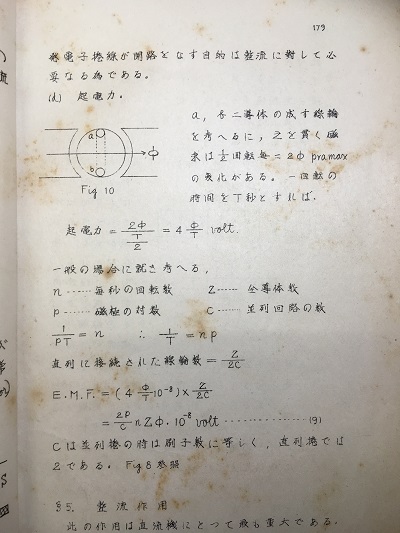 179
発電子捲線が閉路となす目的は整流に対して必
要なる為である。
(d) 起電力.
a
b
Φ
Fig 10
a, b 二導体の成す線輪
を考へるに, 之を貫く磁
束は½回転毎=2Φ pramax
の変化がある. 一回転の
時間をT秒とすれば.
起電力 = 2Φ/(T/2) = 4 Φ/T volt.
一般の場合に就き考へる,
n ‥‥‥ 毎秒の回転数 Z ‥‥‥ 全導体数
P ‥‥‥ 磁極の対数 C ‥‥‥ 並列回路の数
1/PT = n ∴ 1/T = nP
直列に接続された線輪数 = Z/2C
E.M.F. = (4 Φ/T 10⁻⁸) × Z/2C
= 2P/C nZΦ・10⁻⁸ volt ‥‥‥‥‥‥ (9)
Cは並列捲の時は刷子数に等しく, 直列捲では
2である. Fig 8 参照
§5. 整流作用
此の作用は直流機にとつて最も重大である.